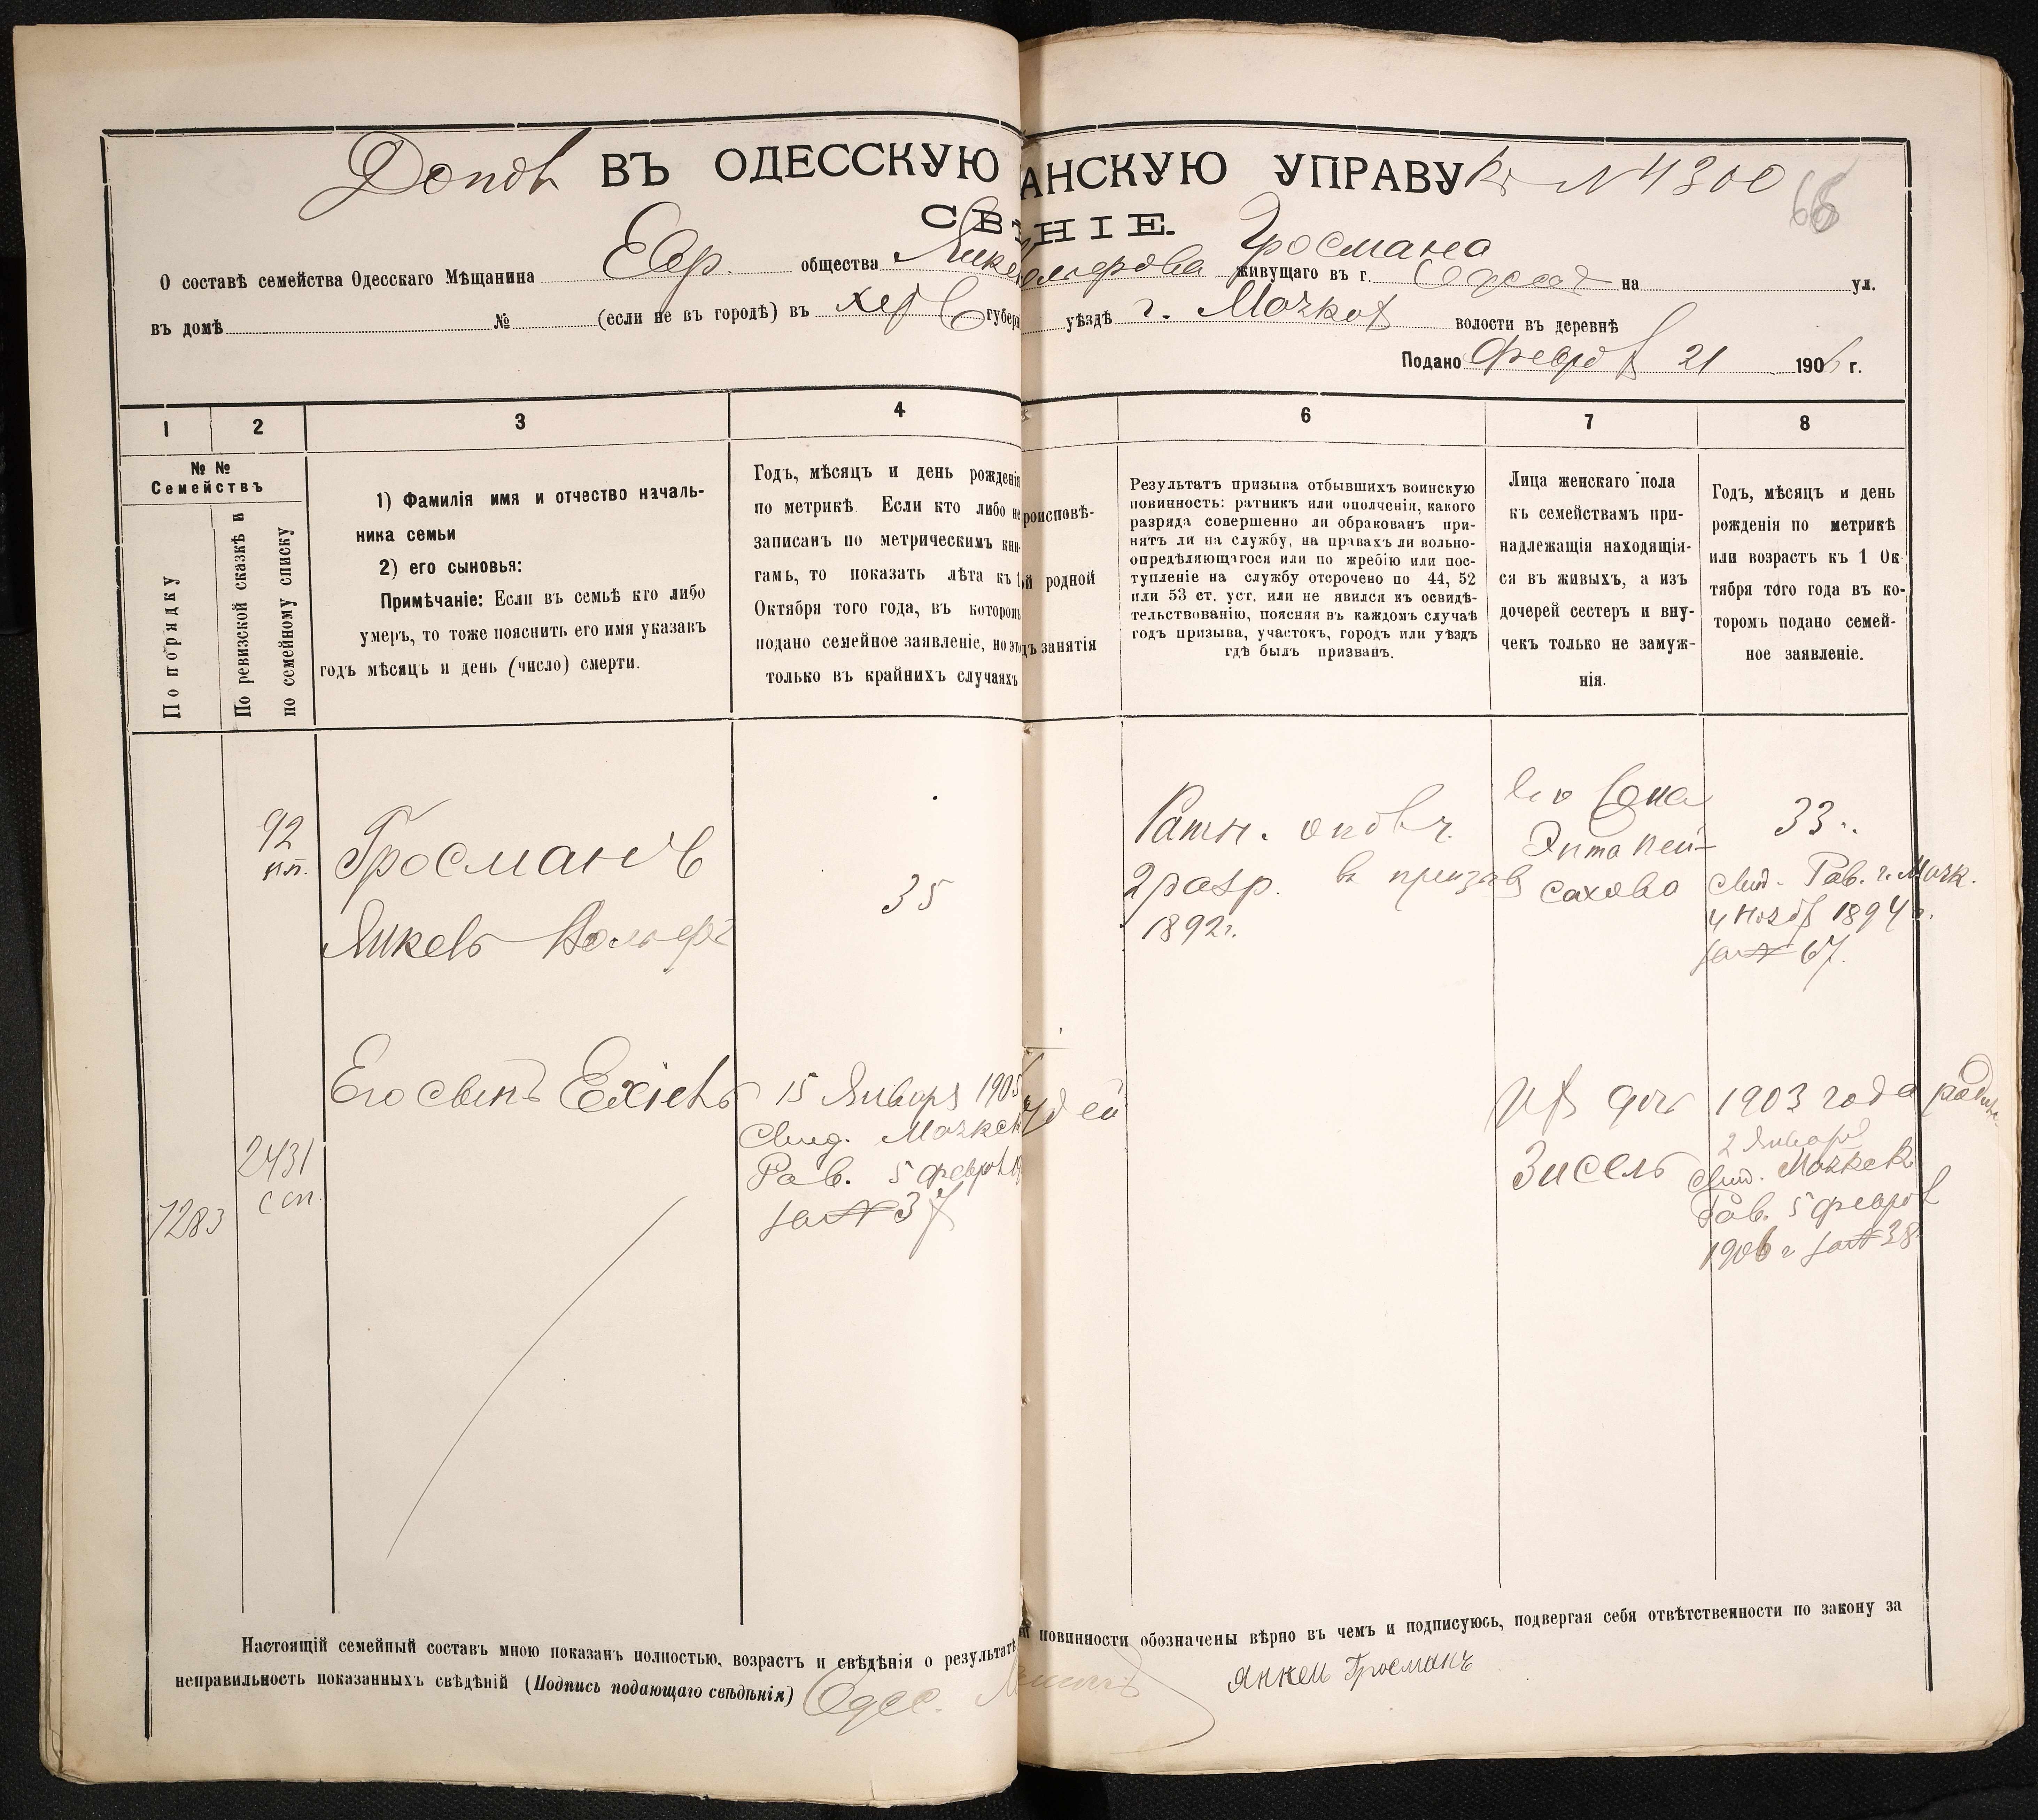 ВЪ ОДЕССКУЮ АНСКУЮ УПРАВУ № 4300
66
НІЕ.
О составѣ семейства Одесскаго Мѣщанина Евр. общества Гросмана живущаго въ г. на ул.
въ домѣ № (если не въ городѣ) въ Хер уѣздѣ г. волости въ деревнѣ
Подано 21 1906 г.
1 2 3 4 6 7 8
№ №
Семействъ
По порядку
По ревизской сказкѣ и
по семейному списку
1) Фамилія имя и отчество началь-
ника семьи
2) его сыновья:
Примѣчаніе: Если въ семьѣ кто либо
умеръ, то тоже пояснить его имя указавъ
годъ мѣсяцъ и день (число) смерти.
Годъ, мѣсяцъ и день рожденія
по метрикѣ. Если кто либо не
записанъ по метрическимъ кни-
гамъ, то показать лѣта къ 1
Октября того года, въ которомъ
подано семейное заявленіе, но это
только въ крайнихъ случаяхъ
роисповѣ-
й родной
дъ занятія
Результатъ призыва отбывшихъ воинскую
повинность: ратникъ или ополченія, какого
разряда совершенно ли обракованъ при-
нятъ ли на службу, на правахъ ли вольно-
опредѣляющагося или по жребію или пос-
тупленіе на службу отсрочено по 44, 52
или 53 ст. уст. или не явился къ освидѣ-
тельствованію, поясняя въ каждомъ случаѣ
годъ призыва, участокъ, городъ или уѣздъ
гдѣ былъ призванъ.
Лица женскаго пола
къ семействамъ при-
надлежащія находящія-
ся въ живыхъ, а изъ
дочерей сестеръ и вну-
чекъ только не замуж-
нія.
Годъ, мѣсяцъ и день
рожденія по метрикѣ
или возрастъ къ 1 Ок-
тября того года въ ко-
торомъ подано семей-
ное заявленіе.
92
Гросманъ
Янкель Вольфъ
35
Ратн. ополч.
2 разр. въ призыв
1892 г.
Его жена
Энта Пей-
сахова
33
Свид. Раб. г. Маяк.
4 Нояб 1894 г.
за № 67.
Его сынъ Ехіель
15 Января 1905
Свид. Маяк
Раб. 5 февр
за № 37
Іудей
Их дочь
Зисель
1903 года родил
2 Января
Свид. Маяк
Раб. 5 февр
1906 г за № 38
2431
сп.
7283
Настоящій семейный составъ мною показанъ полностью, возрастъ и свѣдѣнія о результатѣ повинности обозначены вѣрно въ чемъ и подписуюсь, подвергая себя отвѣтственности по закону за
неправильность показанныхъ свѣдѣній (Подпись подающаго свѣдѣнія) Одес.
Янкель Гросманъ